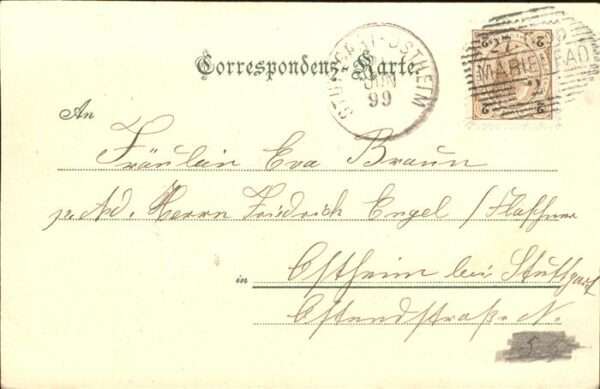 Correspondenz-Karte.
STUTTGART-OSTHEIM
JUN
99
MARIENBAD
2
An
Fräulein Eva Braun
p. Ad. Herrn Friedrich Engel / Flaschner
in Ostheim bei Stuttgart
Ostendstraße N.
5